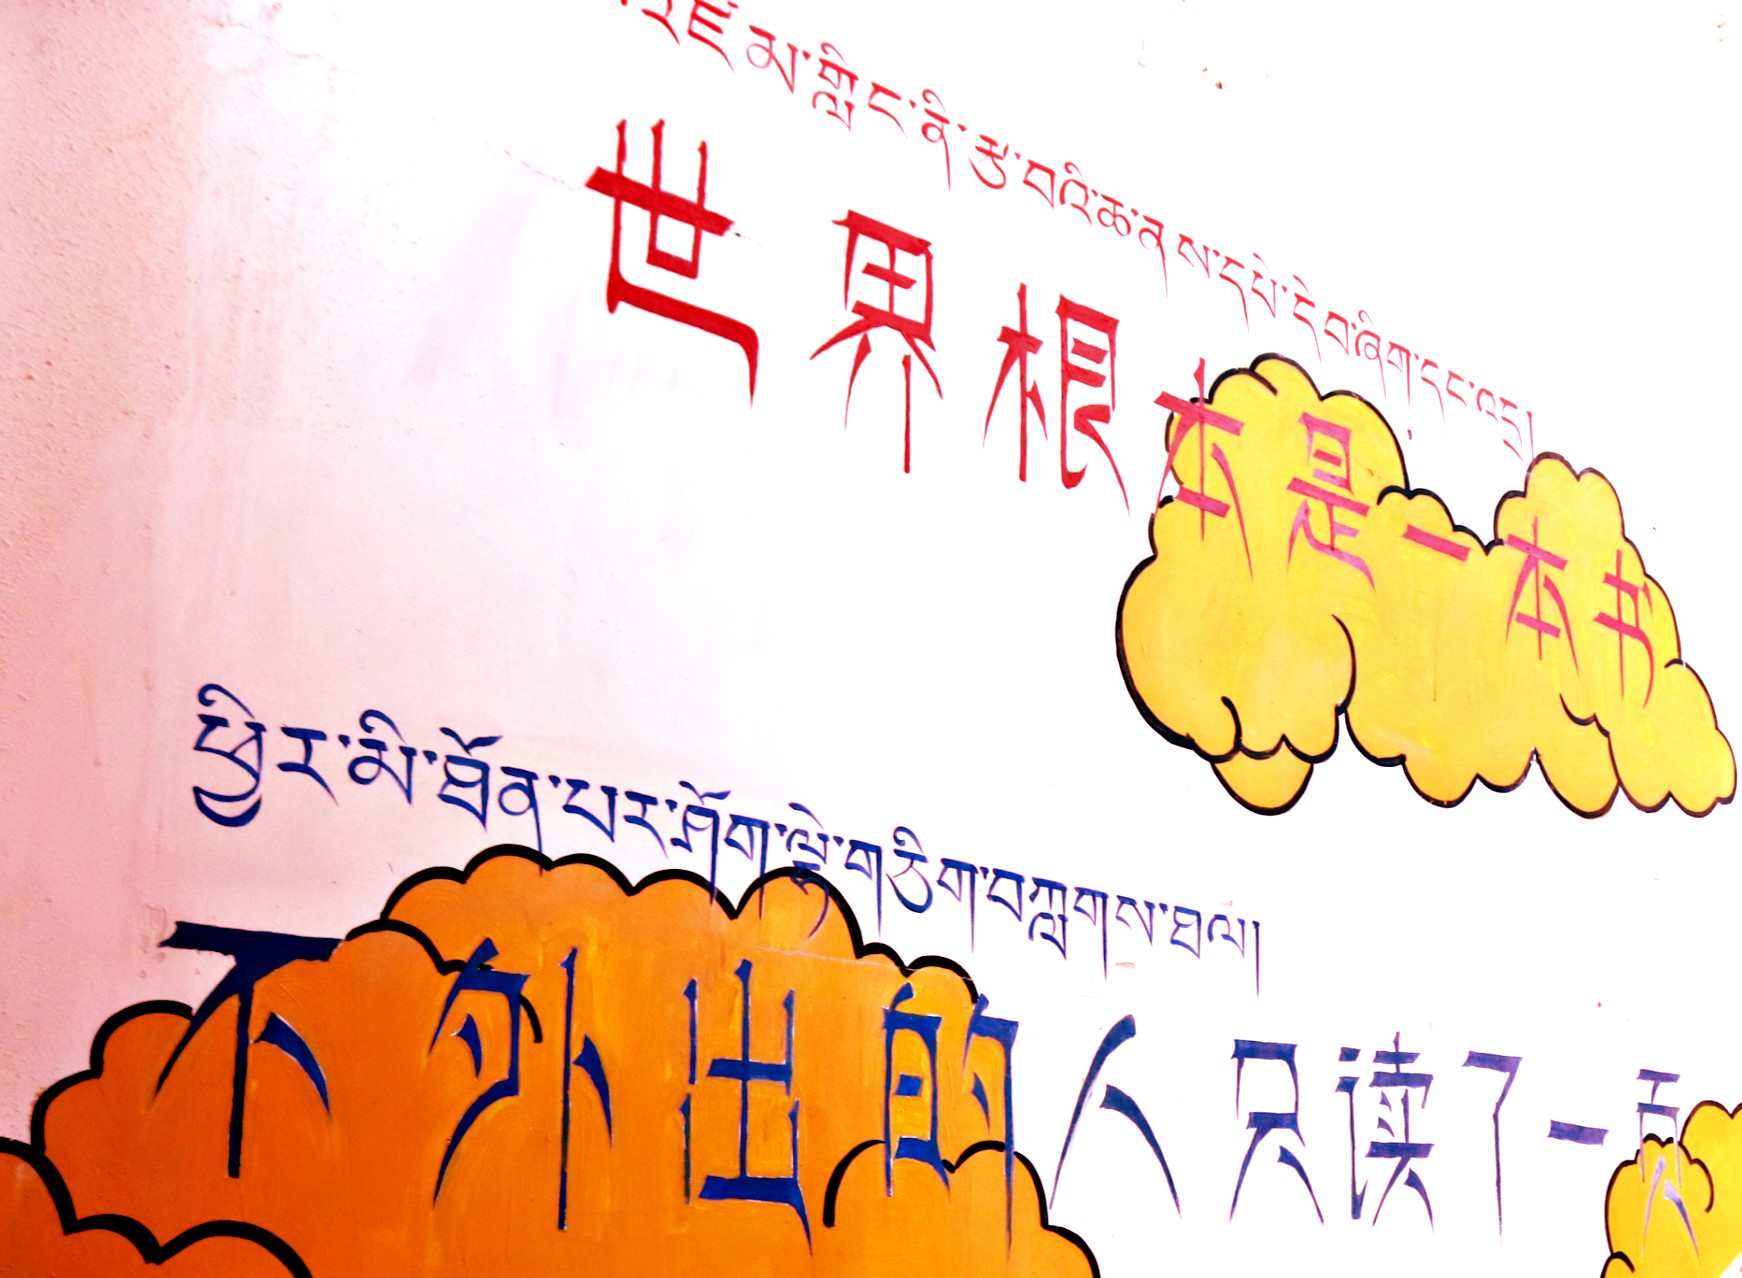 མ་གླིང་ནི་རྩ་བའི་ཆ་ནས་དཔེ་དེབ་ཞིག་དང་འདྲ།
世界根本是一本书
ཕྱིར་མི་ཐོན་པར་ཤོག་ལྷེ་གཅིག་བཀླགས་ཐལ།
不外出的人只读了一页